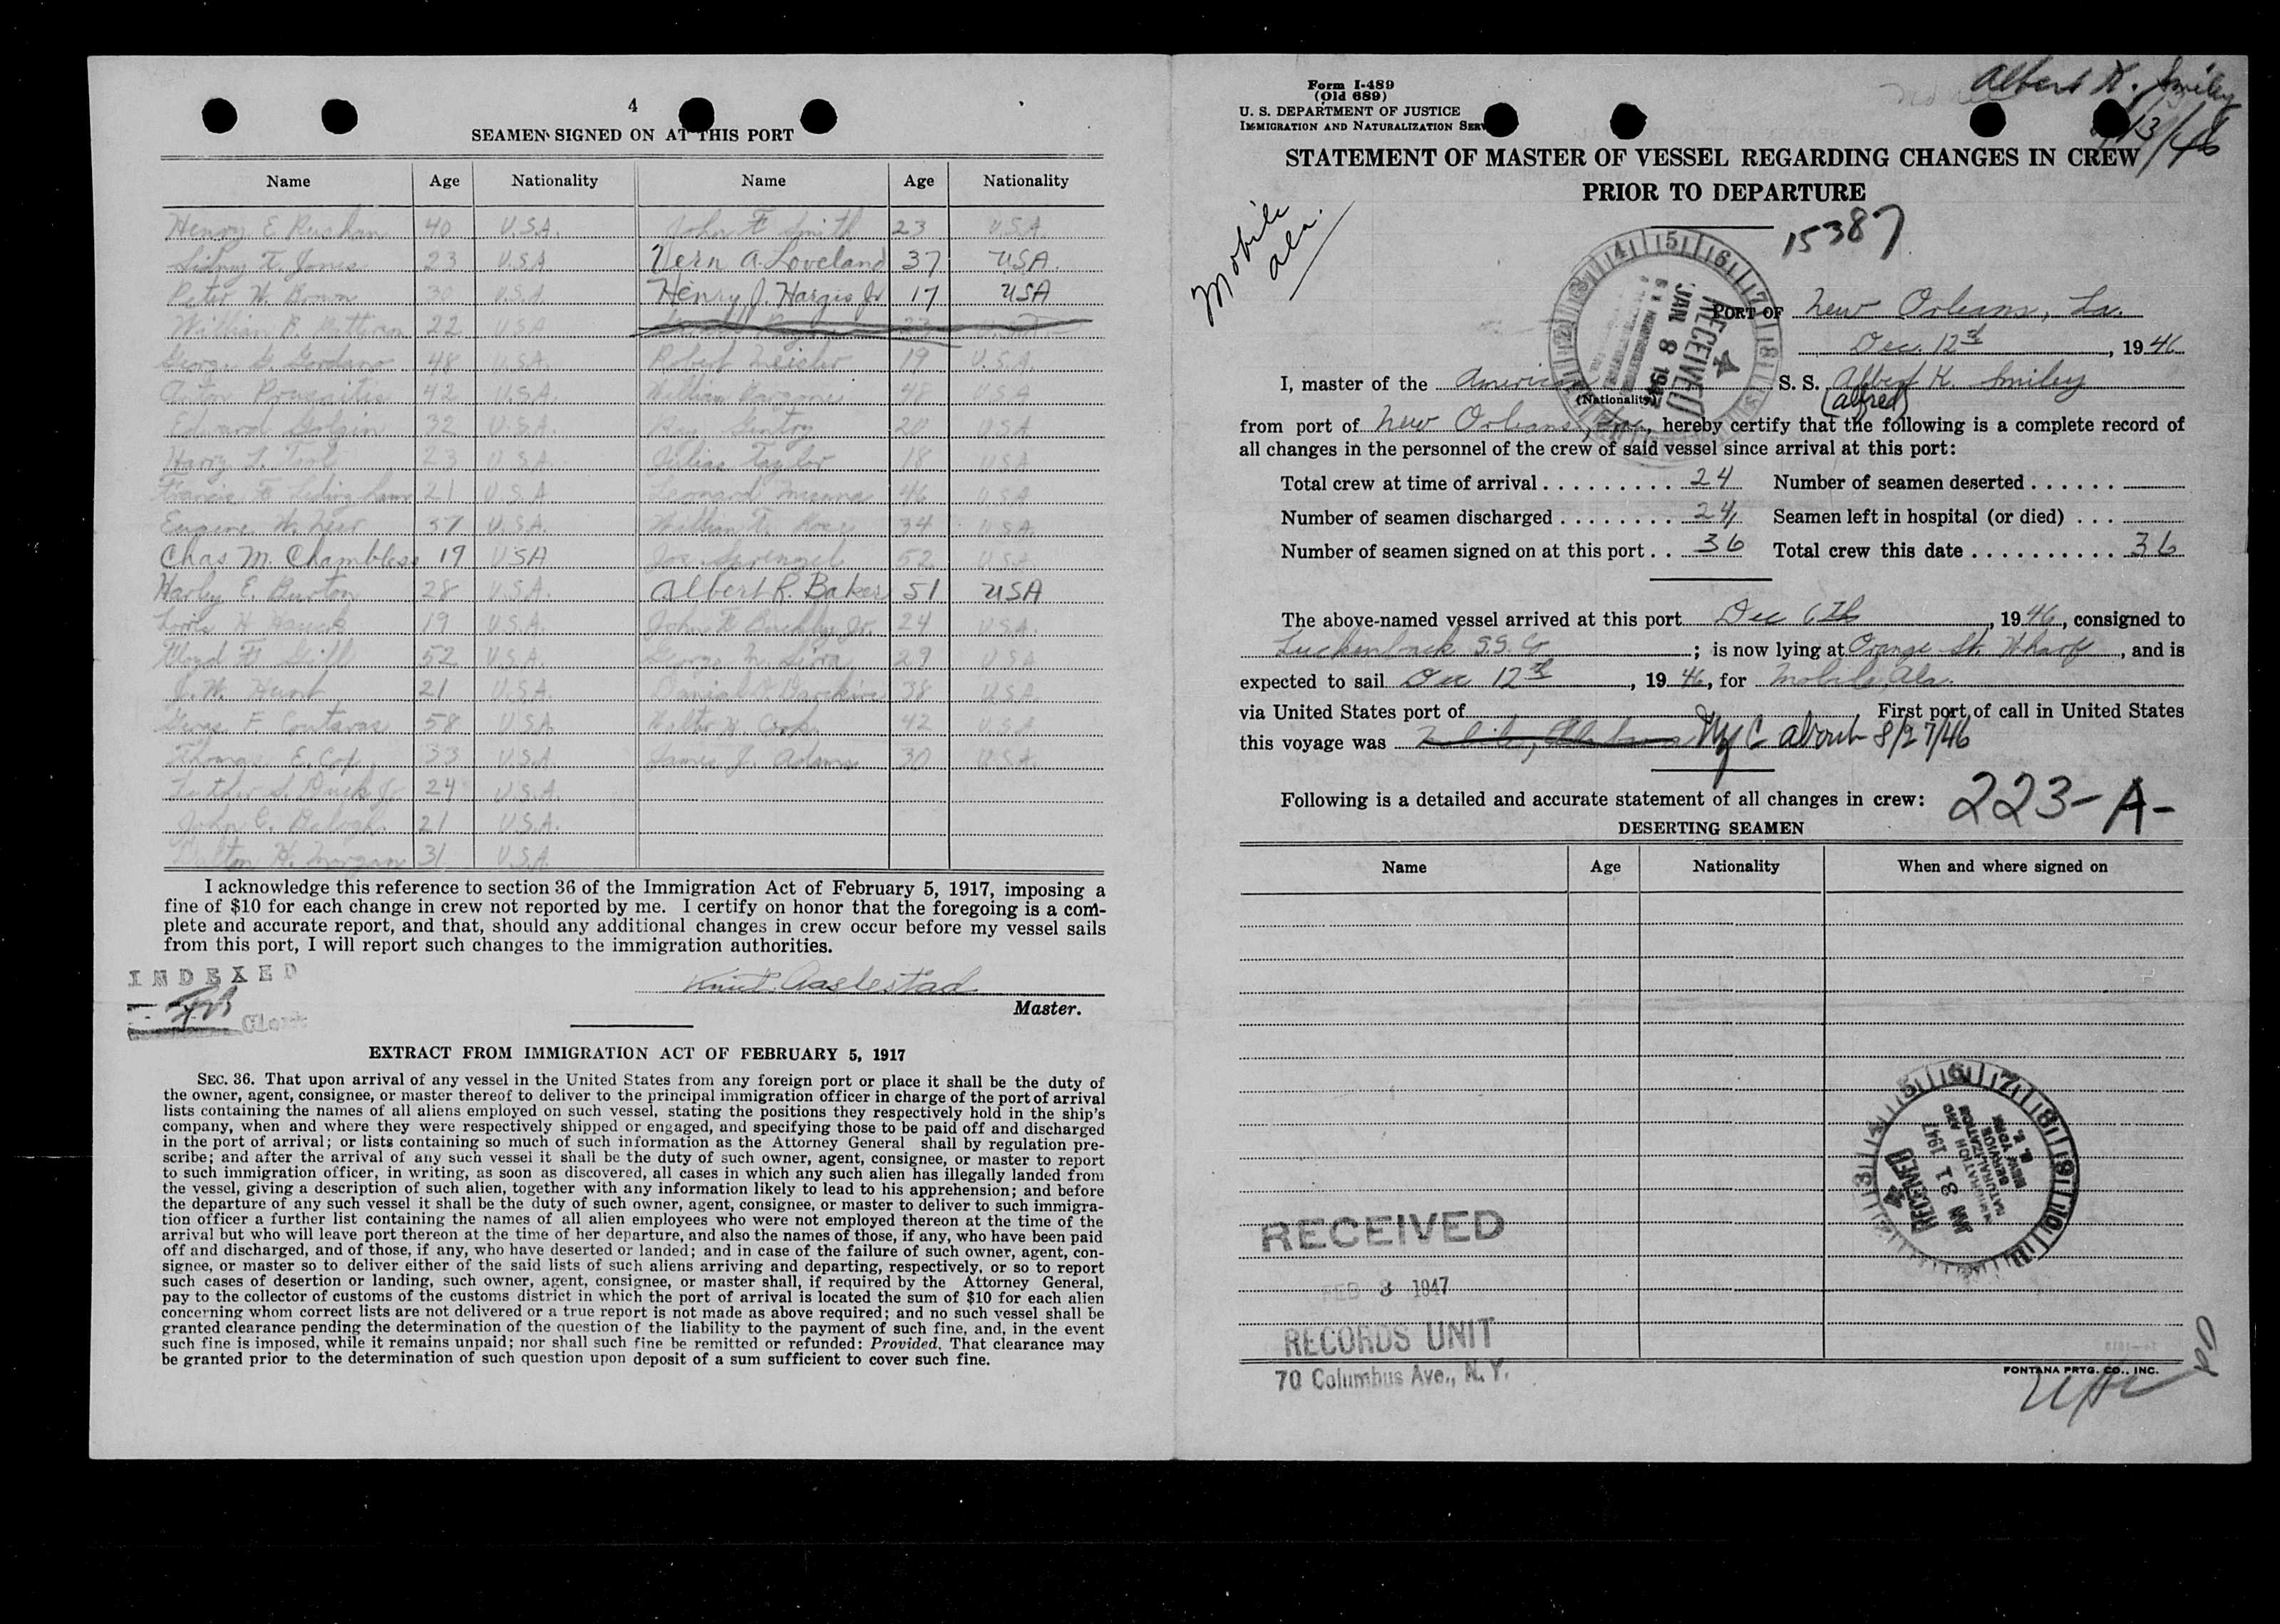 4
SEAMEN SIGNED ON AT THIS PORT
Name Age Nationality Name Age Nationality
Henry E 40 U.S.A. John F Smith 23 U.S.A
Sidney F. Jones 23 U.S.A Vern A. Loveland 37 USA.
Peter W. Brown 30 U.S.A Henry J. Hargis Jr 17 USA
William 22 U.S.A
George G. Gordano 48 U.S.A. Robert Meisler 19 U.S.A.
42 U.S.A. William 48 U.S.A
Edward 32 U.S.A. Ray Gentry U.S.A
Harry 23 U.S.A. Julian Taylor 18 U.S.A
Francis 21 U.S.A Leonard 46 U.S.A
Eugene W. 37 U.S.A. William T. 34 U.S.A.
Chas M. Chambless 19 USA Joe Sprengel 52 U.S.A.
Harley E. Burton 28 U.S.A. Albert R. Baker 51 USA
H 19 U.S.A. John H Jr. 24 U.S.A.
Lloyd F Gill 52 U.S.A. George 29 U.S.A
J. W. Hunt 21 U.S.A. Daniel 38 U.S.A.
F. Contaras 58 U.S.A Walter W. Cook 42 U.S.A
Thomas E. Cox 33 U.S.A James J. Adams 30 U.S.A.
Luther S. Jr. 24 U.S.A.
John C. Balogh 21 U.S.A.
Dalton H. Morgan 31 U.S.A.
I acknowledge this reference to section 36 of the Immigration Act of February 5, 1917, imposing a
fine of $10 for each change in crew not reported by me. I certify on honor that the foregoing is a com-
plete and accurate report, and that, should any additional changes in crew occur before my vessel sails
from this port, I will report such changes to the immigration authorities.
INDEXED
Knut Aaslestad
Master.
Clerk
EXTRACT FROM IMMIGRATION ACT OF FEBRUARY 5, 1917
SEC. 36. That upon arrival of any vessel in the United States from any foreign port or place it shall be the duty of
the owner, agent, consignee, or master thereof to deliver to the principal immigration officer in charge of the port of arrival
lists containing the names of all aliens employed on such vessel, stating the positions they respectively hold in the ship's
company, when and where they were respectively shipped or engaged, and specifying those to be paid off and discharged
in the port of arrival; or lists containing so much of such information as the Attorney General shall by regulation pre-
scribe; and after the arrival of any such vessel it shall be the duty of such owner, agent, consignee, or master to report
to such immigration officer, in writing, as soon as discovered, all cases in which any such alien has illegally landed from
the vessel, giving a description of such alien, together with any information likely to lead to his apprehension; and before
the departure of any such vessel it shall be the duty of such owner, agent, consignee, or master to deliver to such immigra-
tion officer a further list containing the names of all alien employees who were not employed thereon at the time of the
arrival but who will leave port thereon at the time of her departure, and also the names of those, if any, who have been paid
off and discharged, and of those, if any, who have deserted or landed; and in case of the failure of such owner, agent, con-
signee, or master so to deliver either of the said lists of such aliens arriving and departing, respectively, or so to report
such cases of desertion or landing, such owner, agent, consignee, or master shall, if required by the Attorney General,
pay to the collector of customs of the customs district in which the port of arrival is located the sum of $10 for each alien
concerning whom correct lists are not delivered or a true report is not made as above required; and no such vessel shall be
granted clearance pending the determination of the question of the liability to the payment of such fine, and, in the event
such fine is imposed, while it remains unpaid; nor shall such fine be remitted or refunded: Provided, That clearance may
be granted prior to the determination of such question upon deposit of a sum sufficient to cover such fine.
Form I-489
(Old 689)
U. S. DEPARTMENT OF JUSTICE
IMMIGRATION AND NATURALIZATION SERV
Albert K. Smiley
13/46
STATEMENT OF MASTER OF VESSEL REGARDING CHANGES IN CREW
PRIOR TO DEPARTURE
Mobile
Ala.
15387
RECEIVED
JAN 8 194
PORT OF New Orleans, La.
Dec. 12th, 1946
I, master of the American S. S. Albert K. Smiley
(Nationality) (Alfred)
from port of New Orleans, La., hereby certify that the following is a complete record of
all changes in the personnel of the crew of said vessel since arrival at this port:
Total crew at time of arrival 24 Number of seamen deserted
Number of seamen discharged 24 Seamen left in hospital (or died)
Number of seamen signed on at this port 36 Total crew this date 36
The above-named vessel arrived at this port Dec 6th, 1946, consigned to
Luckenback S.S. Co; is now lying at Orange St. Wharf, and is
expected to sail Dec 12th, 1946, for Mobile, Ala.
via United States port of First port of call in United States
this voyage was Mobile, Alabama NYC about 8/27/46
Following is a detailed and accurate statement of all changes in crew: 223-A-
DESERTING SEAMEN
Name Age Nationality When and where signed on
RECEIVED
JAN 31 1947
IMMIGRATION AND
NATURALIZATION
SERVICE
NEW YORK
RECEIVED
FEB 3 1947
RECORDS UNIT
70 Columbus Ave., N. Y.
FONTANA PRTG. CO., INC.